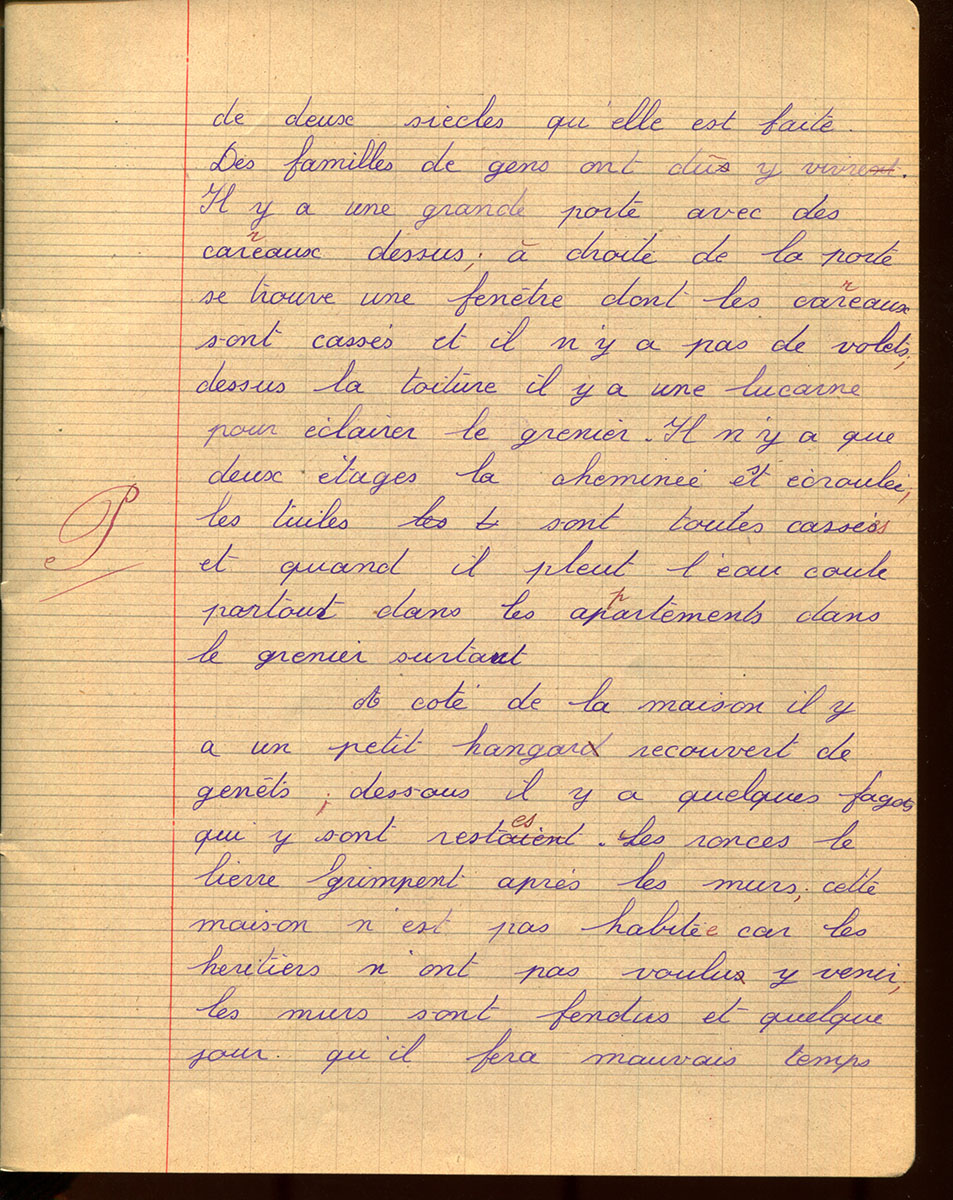 de deux siècles qu'elle est faite.
Des familles de gens ont dûs y vivrent.
Il y a une grande porte avec des
careaux dessus ; à droite de la porte
r
se trouve une fenêtre dont les careaux
r
sont cassés et il n'y a pas de volets ;
dessus la toiture il y a une lucarne
pour éclairer le grenier. Il n'y a que
deux étages la cheminée est écroulée,
P
les tuiles les t sont toutes cassées
et quand il pleut l'eau coule
partout dans les apartements dans
p
le grenier surtout
A coté de la maison il y
a un petit hangard recouvert de
genêts ; dessous il y a quelques fagots
qui y sont restaient. Les ronces le
es
lierre grimpent après les murs, cette
maison n'est pas habitée car les
heritiers n'ont pas voulus y venir,
les murs sont fendus et quelque
jour qu'il fera mauvais temps